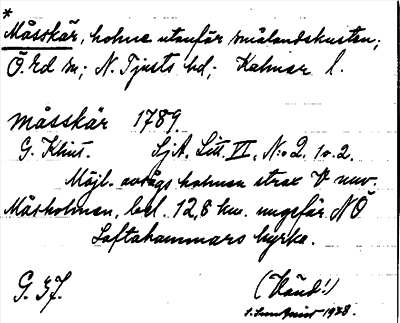 *
Måsskär, holme utanför smålandskusten;
Ö. Ed sn; N. Tjusts hd; Kalmar l.
Måsskär 1789.
G. Klint. Sjk. Litt. VI, N:o 2. 1o. 2.
Möjl. avsågs holmen strax V nuv.
Måsholmen, bel. 12,8 km. ungefär NÖ
Loftahammars kyrka.
G. Ff. (Händ!)
1938.